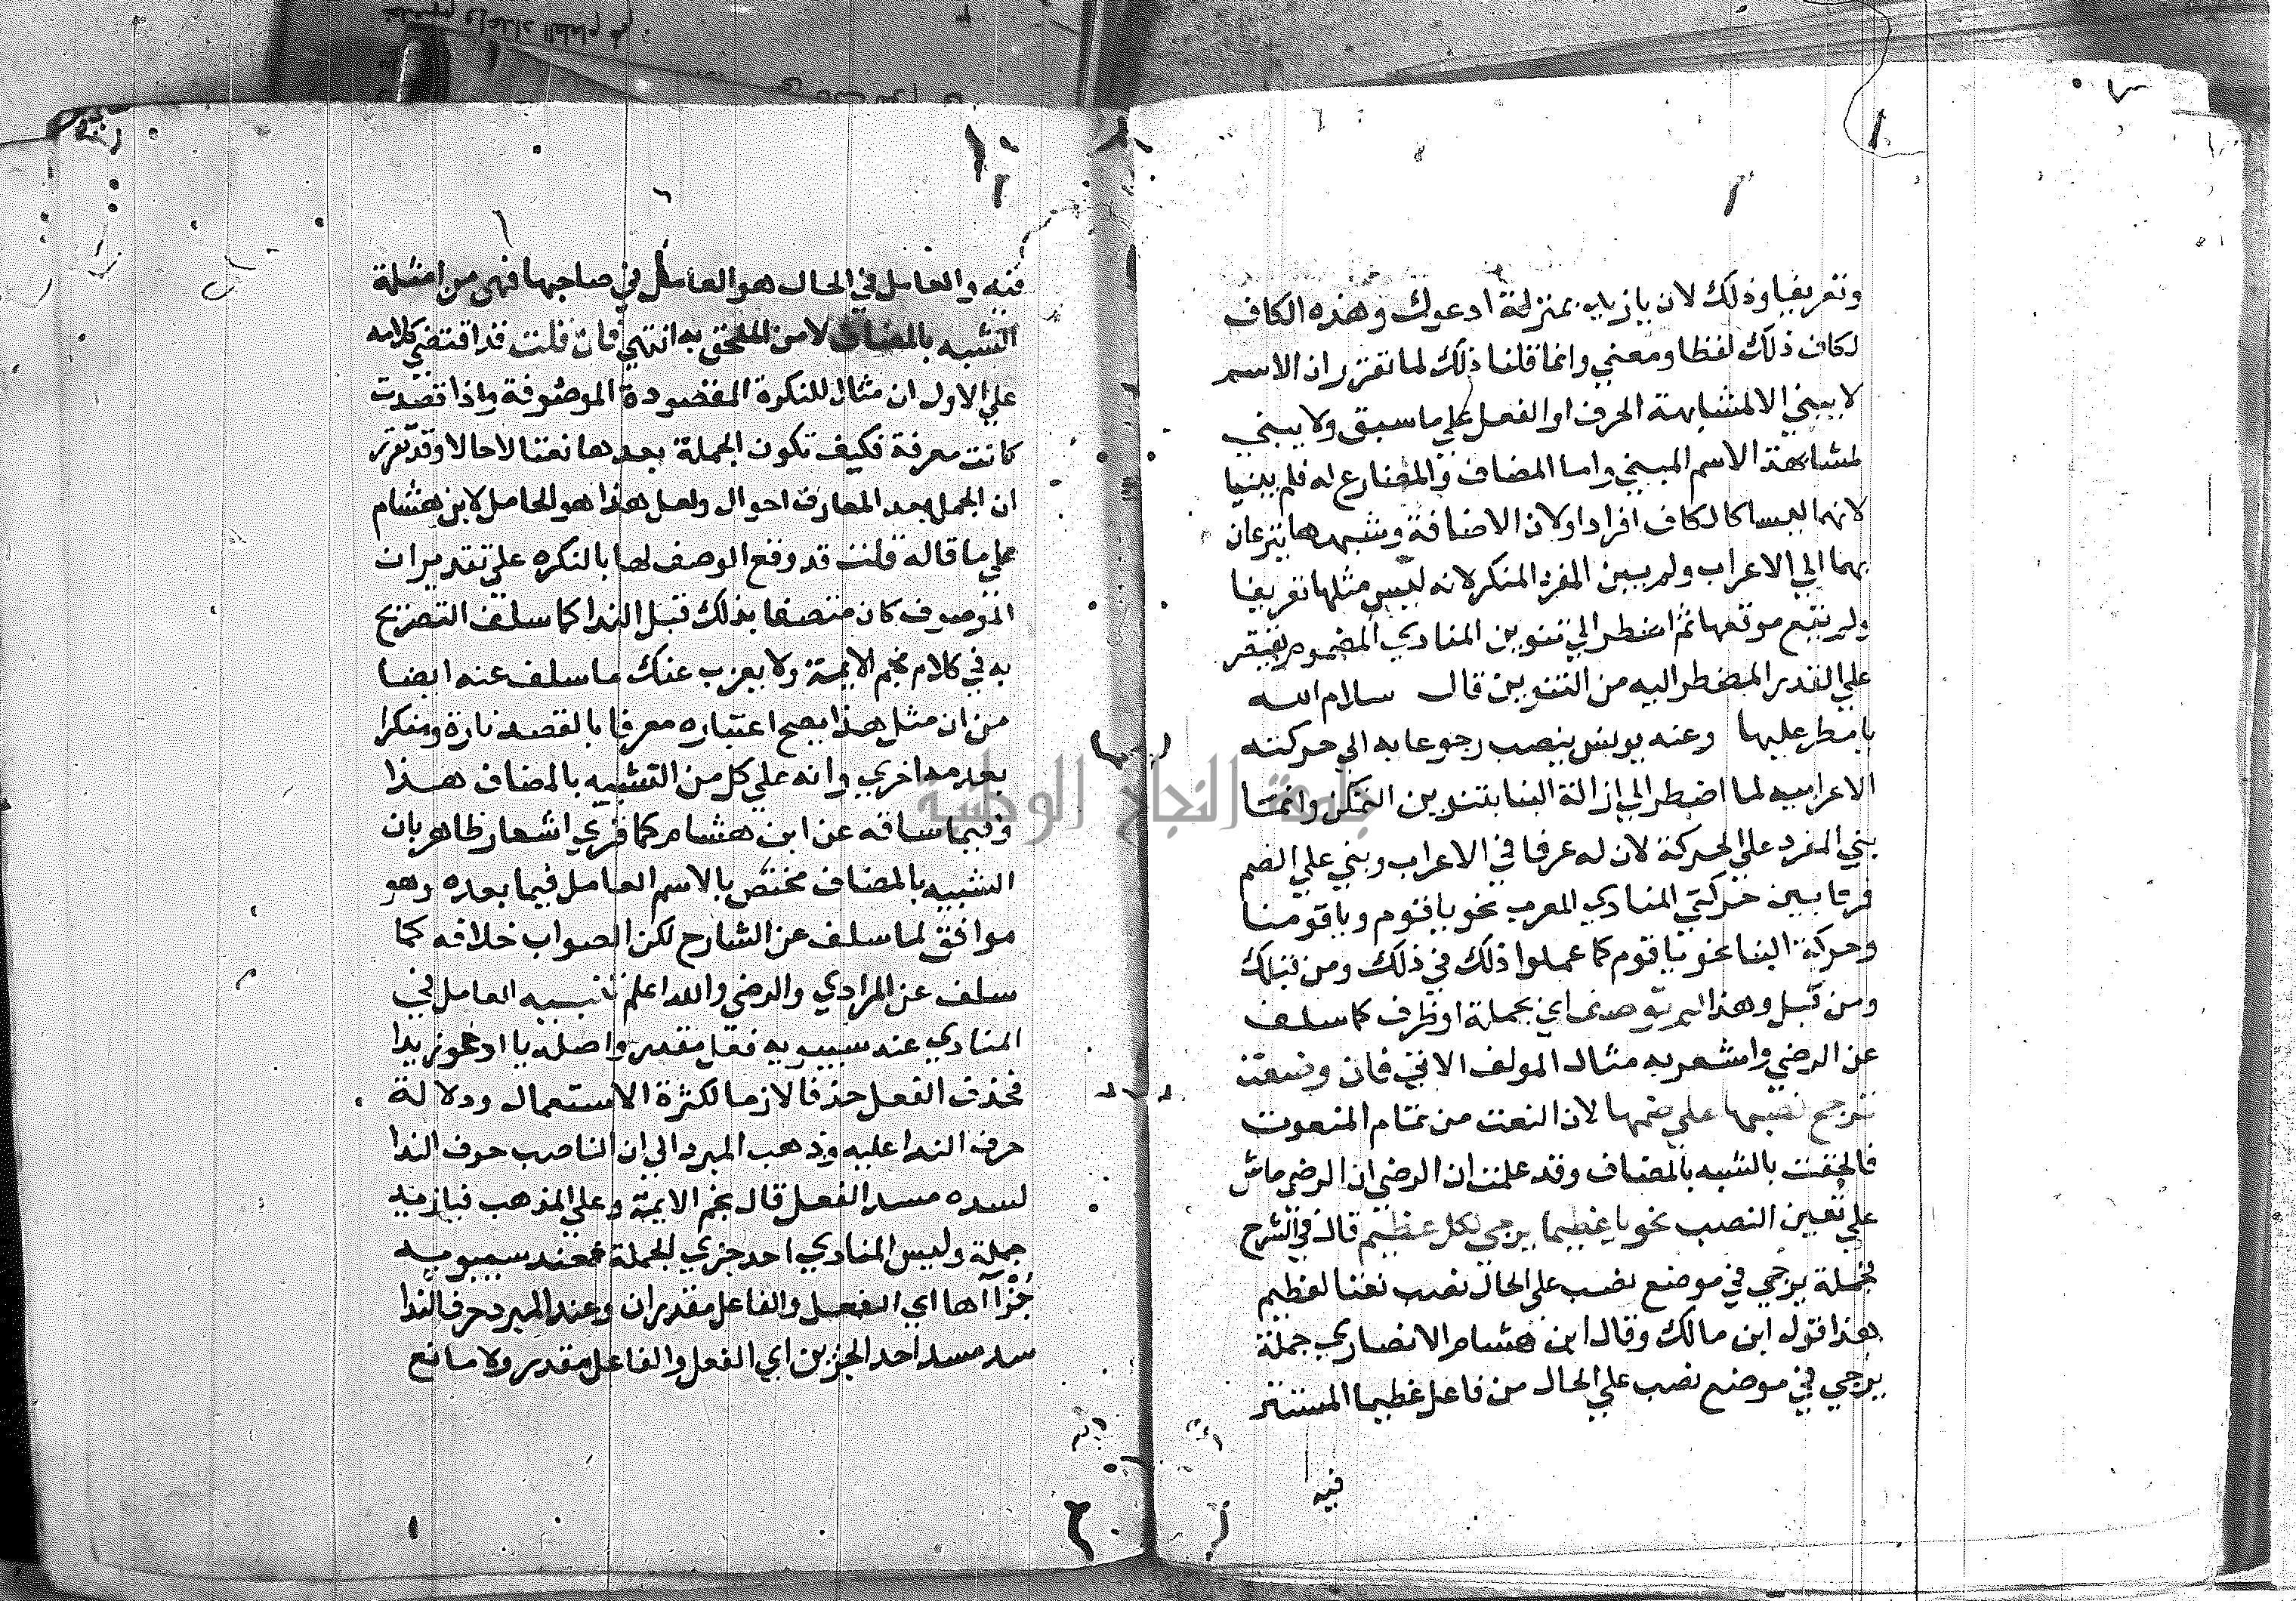 وتعريفا وذلك لان يا زيد بمنزلة ادعوك وهذه الكاف
لكاف ذلك لفظا ومعني وانما قلنا ذلك لما تقرر ان الاسم
لا يبني الا لمشابهة الحرف او الفعل علي ما سبق ولا يبني
لمشابهة الاسم المبني واما المضاف والمضارع له فلم يبنيا
لانهما ليسا كالكاف افرادا ولان الاضافة وشبهها ينزعان
بهما الي الاعراب ولم يبين المفرد المنكر لانه ليس مثلها تعريفا
ولم يقع موقعها ثم اضطر الي تنوين المنادي المضموم يقتصر
علي القدر المضطر اليه من التنوين قال سلام الله
يا مطر عليها وعند يونس ينصب رجوعا به الي حركته
الاعرابيه لما اضطر الي ازالة البنا بتنوين التمكن وانما
بني المفرد علي الحركة لان له عرفا في الاعراب وبني علي الضم
فرقا بين حركتي المنادي المعرب نحو يا قوم ويا قومنا
وحركة البنا نحو يا قوم كما عملوا ذلك في ذلك ومن قبلك
ومن قبل وهذا ان لم توصف اي بجملة او ظرف كما سلف
عن الرضي واشعر به مثال المولف الاتي فان وصفت
ترجح نصبها علي ضمها لان النعت من تمام المنعوت
فالحقت بالشبه بالمضاف وقد علمت ان الرضي ان الرضي ماش
علي تعين النصب نحو يا عظيما يرجي لكل عظيم قال في الشرح
فجملة يرجي في موضع نصب علي الحال نصب نعتا لعظيم
هذا قول ابن مالك وقال ابن هشام الانصاري جملة
يرجي في موضع نصب علي الحال من فاعل عظيما المستتر
فيه
فيه والعامل في الحال هو العامل في صاحبها فهي من امثلة
الشبه بالمضاف لا من الملحق به انتهي فان قلت قد اقتضي كلامه
علي الاول ان مثال للنكرة المقصودة الموصوفة واذا قصدت
كانت معرفة فكيف تكون الجملة بعدها نعتا لا حالا وقد تقرر
ان الجمل بعد المعارف احوال ولعل هذا هو الحامل لابن هشام
علي ما قاله قلت قد وقع الوصف لها بالنكره علي تقدير ان
الموصوف كان متصفا بذلك قبل الندا كما سلف التصريح
به في كلام نجم الايمة ولا يعزب عنك ما سلف عنه ايضا
من ان مثل هذا يصح اعتباره معرفا بالقصد تارة ومنكرا
بعدمه اخري وانه علي كل من التشبيه بالمضاف هذا
وفيما ساقه عن ابن هشام كما تري اشعار ظاهر بان
الشبيه بالمضاف مختص بالاسم العامل فيما بعده وهو
موافق لما سلف عن الشارح لكن الصواب خلافه كما
سلف عن المرادي والرضي والله اعلم تنبيه العامل في
المنادي عند سيبويه فعل مقدر واصله يا ادعو زيدا
فحذف الفعل حذفا لازما لكثرة الاستعمال ودلالة
حرف الندا عليه وذهب المبرد الي ان الناصب حرف الندا
لسده مسد الفعل قال نجم الايمة وعلي المذهب فيا زيد
جملة وليس المنادي احد جزي الجملة فعند سيبويه
جزآها اي الفعل والفاعل مقدران وعند المبرد حرف الندا
سد مسد احد الجزين اي الفعل والفاعل مقدر ولا مانع
جامعة النجاح الوطنية